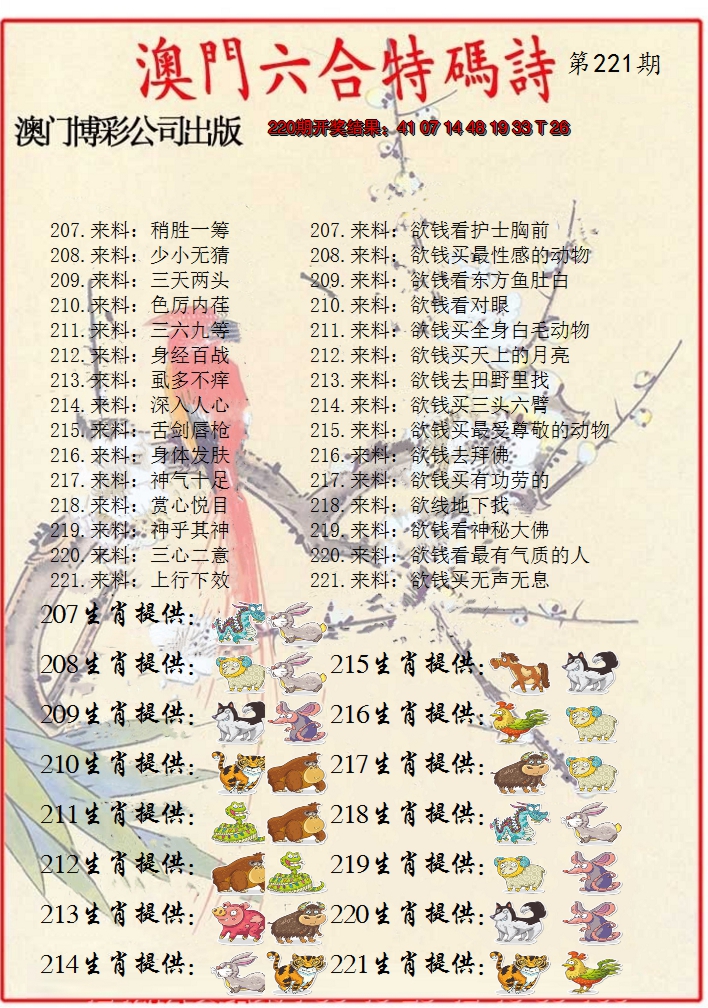 澳門六合特碼詩 第221期
澳门博彩公司出版 220期开奖结果：41 07 14 48 19 33 T 26
207.来料：稍胜一筹 207.来料：欲钱看护士胸前
208.来料：少小无猜 208.来料：欲钱买最性感的动物
209.来料：三天两头 209.来料：欲钱看东方鱼肚白
210.来料：色厉内荏 210.来料：欲钱看对眼
211.来料：三六九等 211.来料：欲钱买全身白毛动物
212.来料：身经百战 212.来料：欲钱买天上的月亮
213.来料：虱多不痒 213.来料：欲钱去田野里找
214.来料：深入人心 214.来料：欲钱买三头六臂
215.来料：舌剑唇枪 215.来料：欲钱买最受尊敬的动物
216.来料：身体发肤 216.来料：欲钱去拜佛
217.来料：神气十足 217.来料：欲钱买有功劳的
218.来料：赏心悦目 218.来料：欲线地下找
219.来料：神乎其神 219.来料：欲钱看神秘大佛
220.来料：三心二意 220.来料：欲钱看最有气质的人
221.来料：上行下效 221.来料：欲钱买无声无息
207生肖提供：
208生肖提供： 215生肖提供：
209生肖提供： 216生肖提供：
210生肖提供： 217生肖提供：
211生肖提供： 218生肖提供：
212生肖提供： 219生肖提供：
213生肖提供： 220生肖提供：
214生肖提供： 221生肖提供：